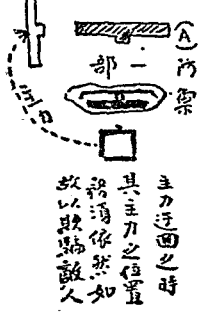 (A)
一部
主力
主力迂回之時
其主力之位置
須依然如
故以欺騙敵人